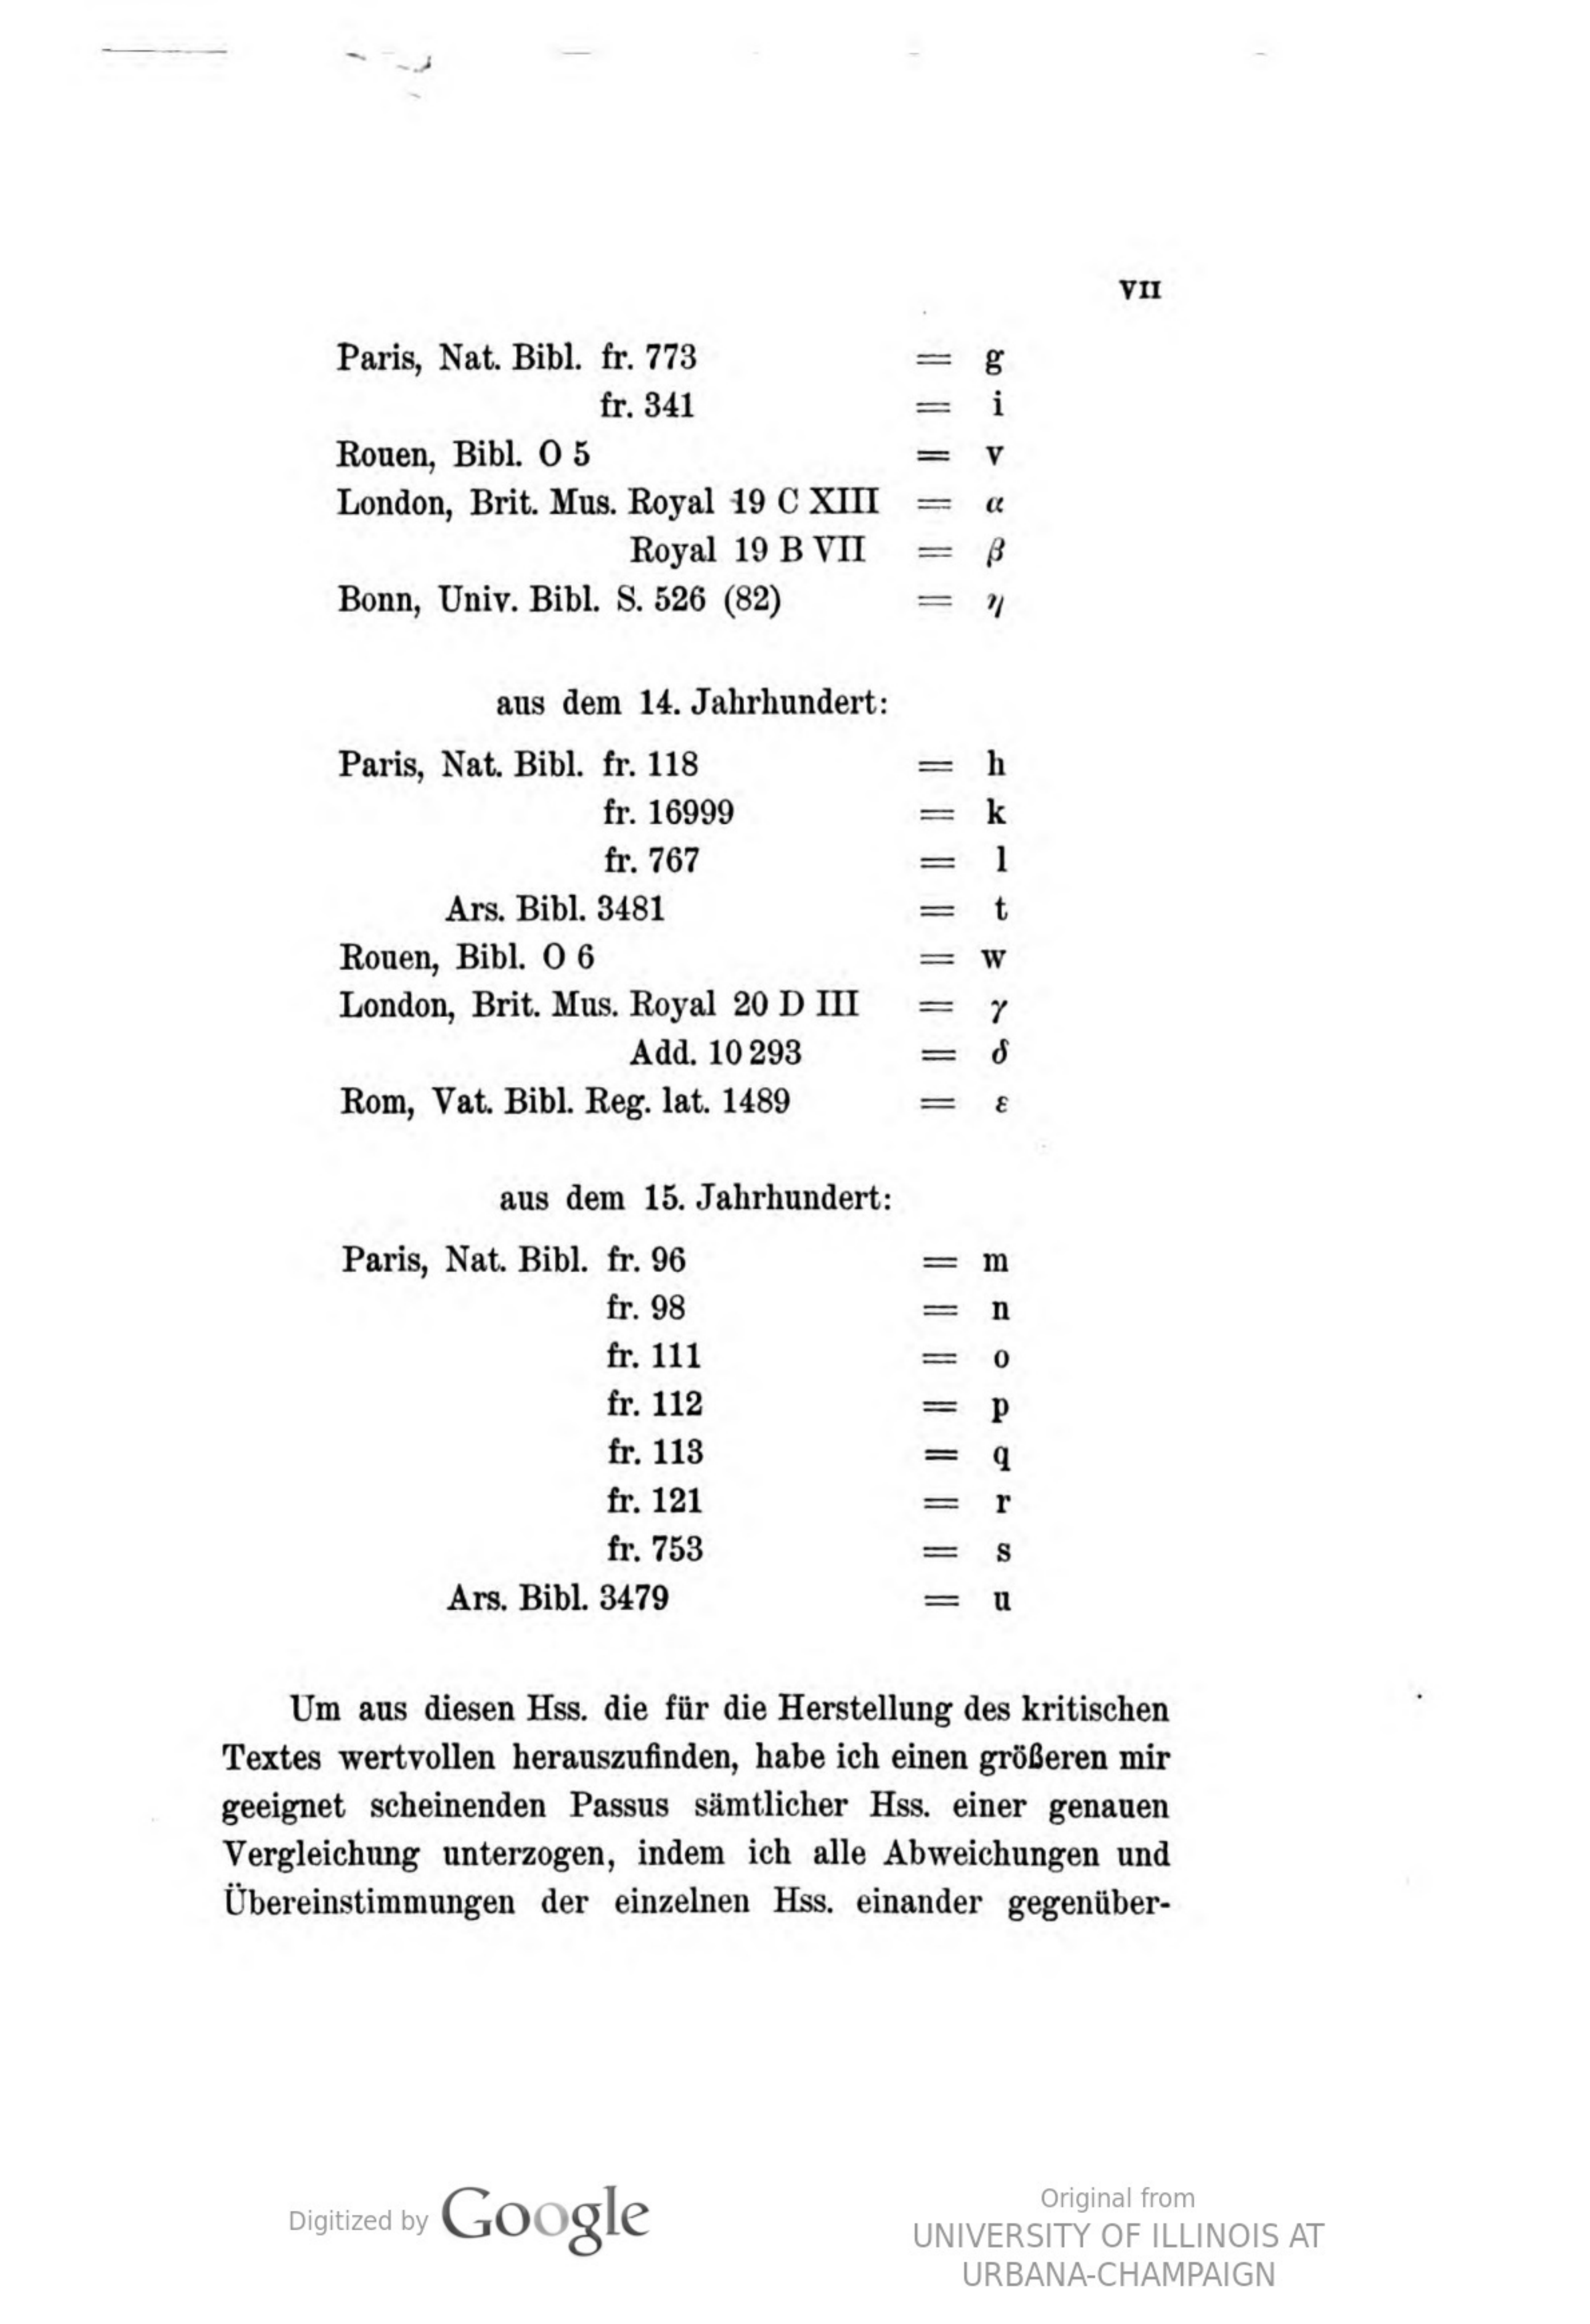 VII
Paris, Nat. Bibl. fr. 773 = g
fr. 341 = i
Rouen, Bibl. O 5 = v
London, Brit. Mus. Royal 19 C XIII = α
Royal 19 B VII = β
Bonn, Univ. Bibl. S. 526 (82) = η
aus dem 14. Jahrhundert:
Paris, Nat. Bibl. fr. 118 = h
fr. 16999 = k
fr. 767 = l
Ars. Bibl. 3481 = t
Rouen, Bibl. O 6 = w
London, Brit. Mus. Royal 20 D III = γ
Add. 10 293 = δ
Rom, Vat. Bibl. Reg. lat. 1489 = ε
aus dem 15. Jahrhundert:
Paris, Nat. Bibl. fr. 96 = m
fr. 98 = n
fr. 111 = o
fr. 112 = p
fr. 113 = q
fr. 121 = r
fr. 753 = s
Ars. Bibl. 3479 = u
Um aus diesen Hss. die für die Herstellung des kritischen
Textes wertvollen herauszufinden, habe ich einen größeren mir
geeignet scheinenden Passus sämtlicher Hss. einer genauen
Vergleichung unterzogen, indem ich alle Abweichungen und
Übereinstimmungen der einzelnen Hss. einander gegenüber-
Digitized by Google
Original from
UNIVERSITY OF ILLINOIS AT
URBANA-CHAMPAIGN